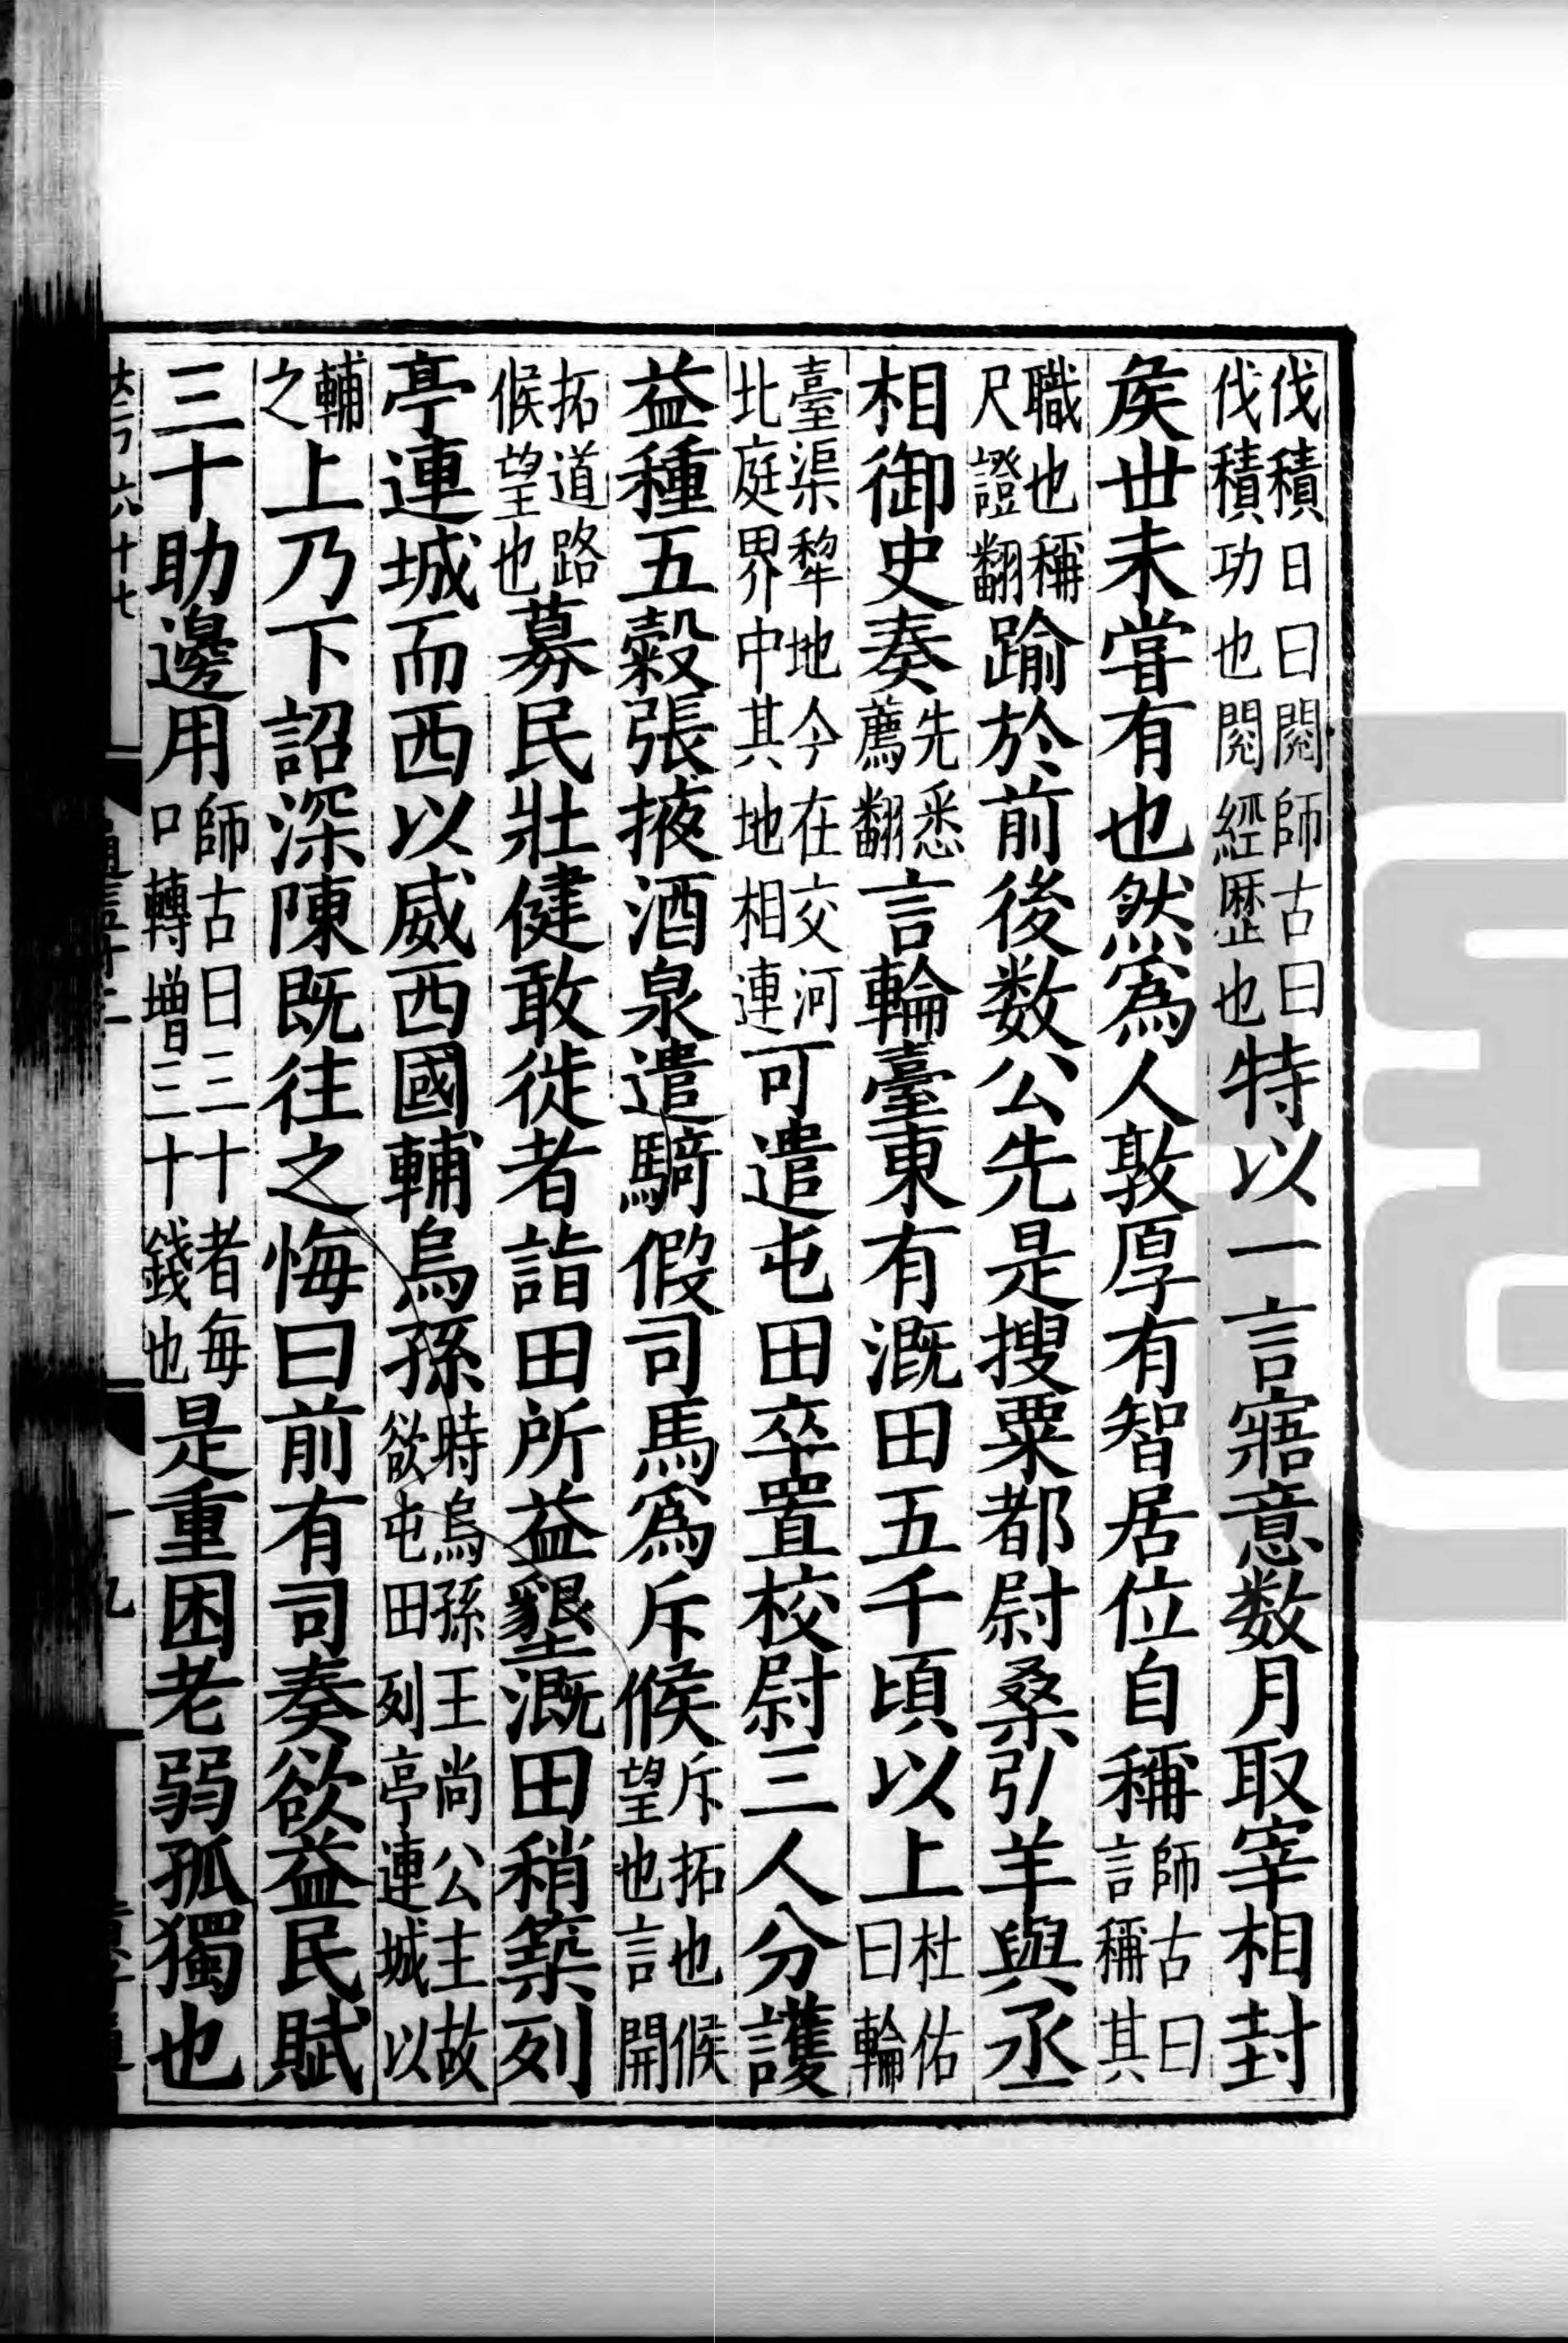 伐積日曰閱師古曰伐積功也閱經歷也特以一言寤意数月取宰相封
矦丗未甞有也然爲人敦厚有智居位自稱師古曰言稱其
職也稱尺證翻踰於前後数公先是搜粟都尉桑引羊與丞
相御史奏先悉薦翻言輪臺東有溉田五千頃以上杜佑曰輪
臺渠犂地今在交河北庭界中其地相連可遣屯田卒置校尉三人分護
益種五穀張掖酒泉遣騎假司馬爲斥候斥拓也候望也言開
拓道路候望也募民壯健敢徙者詣田所益墾溉田稍築列
亭連城而西以威西國輔烏孫時烏孫王尚公主故欲屯田列亭連城以
輔之上乃下詔深陳既往之悔曰前有司奏欲益民賦
三十助邊用師古曰三十者每口轉增三十錢也是重困老弱孤獨也